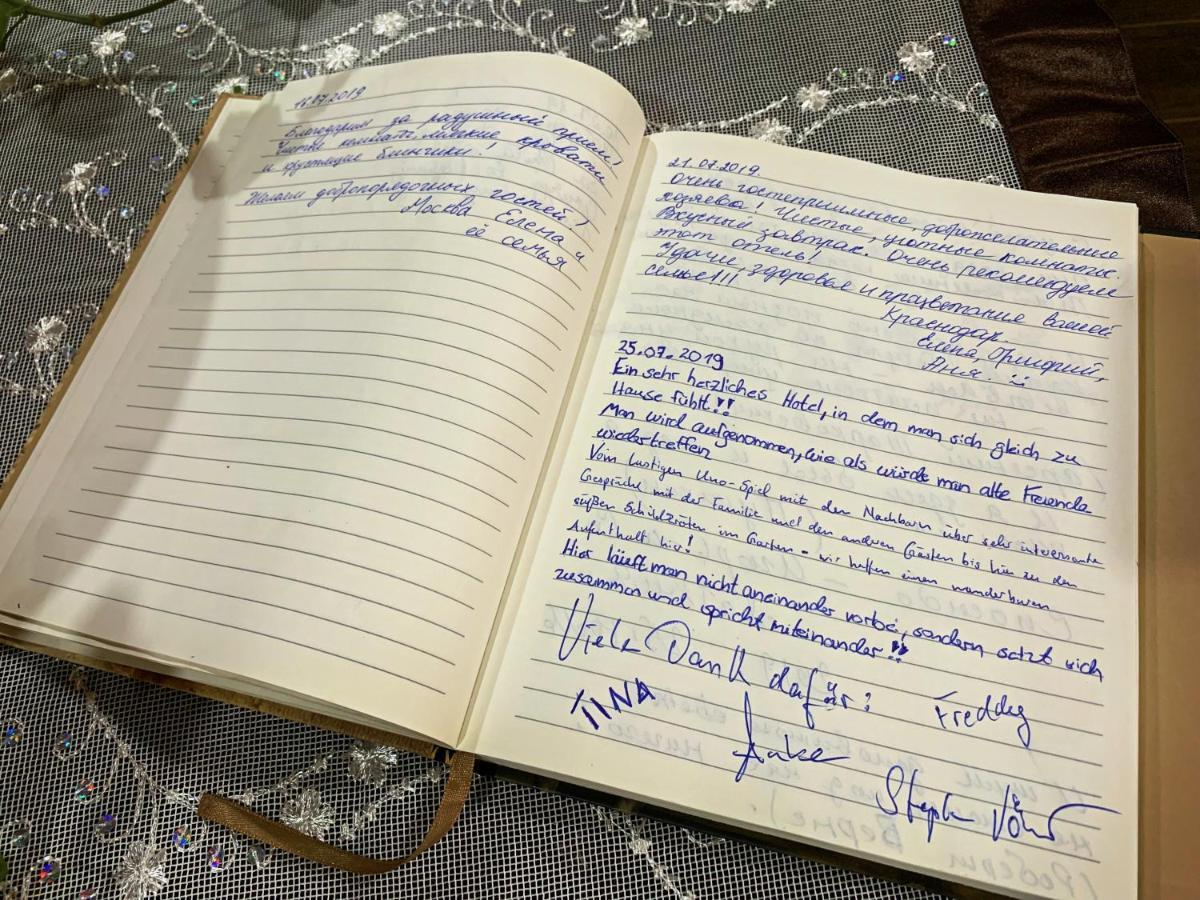 16.07.2019
Благодарим за радушный приём,
чистые комнаты, мягкие кровати
и хрустящие блинчики!
Желаем добропорядочных гостей!
Москва Елена и
её семья
21.07.2019.
Очень гостеприимные, доброжелательные
хозяева! Чистые, уютные комнаты.
Вкусный завтрак. Очень рекомендуем
этот отель!
Удачи, здоровья и процветания вашей
семье!!!
Краснодар.
Елена, Григорий,
Аня.
25.07.2019
Ein sehr herzliches Hotel, in dem man sich gleich zu
Hause fühlt!!
Man wird aufgenommen, wie als würde man alte Freunde
wiedertreffen
Vom lustigen Uno-Spiel mit den Nachbarn über sehr interessante
Gespräche mit der Familie und den anderen Gästen bis hin zu den
süßen Schildkröten im Garten - wir hatten einen wunderbaren
Aufenthalt hier!
Hier läuft man nicht aneinander vorbei, sondern setzt sich
zusammen und spricht miteinander!!
Viele Dank dafür!
Freddy
TINA
Anke
Steph